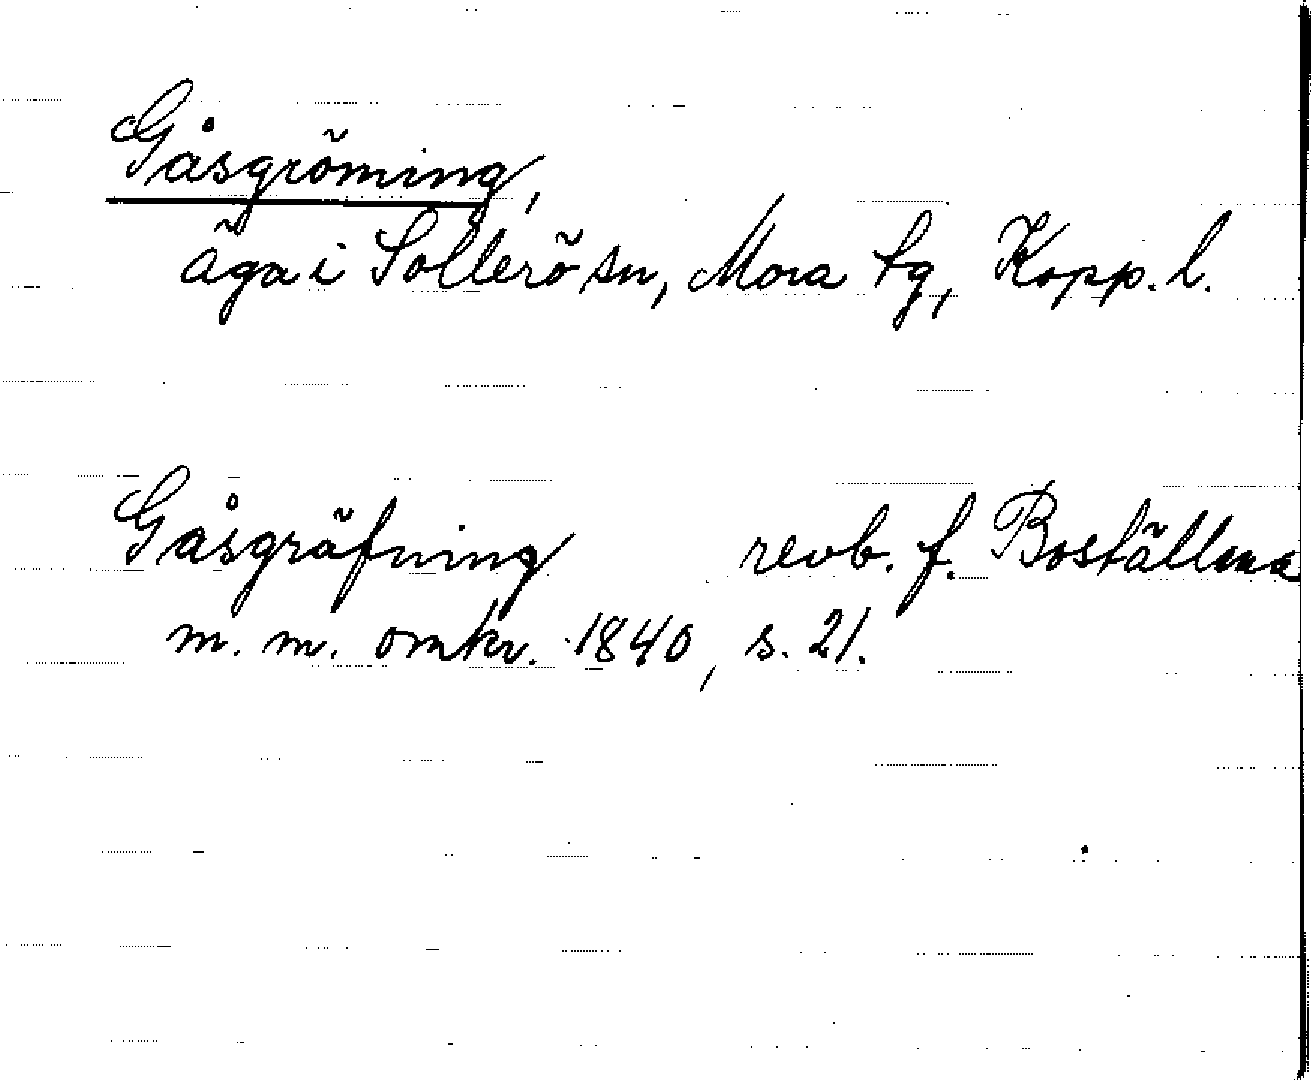 Gåsgröming,
äga i Sollerö sn, Mora tg, Kopp. l.
Gåsgräfning revb. f. Boställena
m. m. omkr. 1840, s. 21.